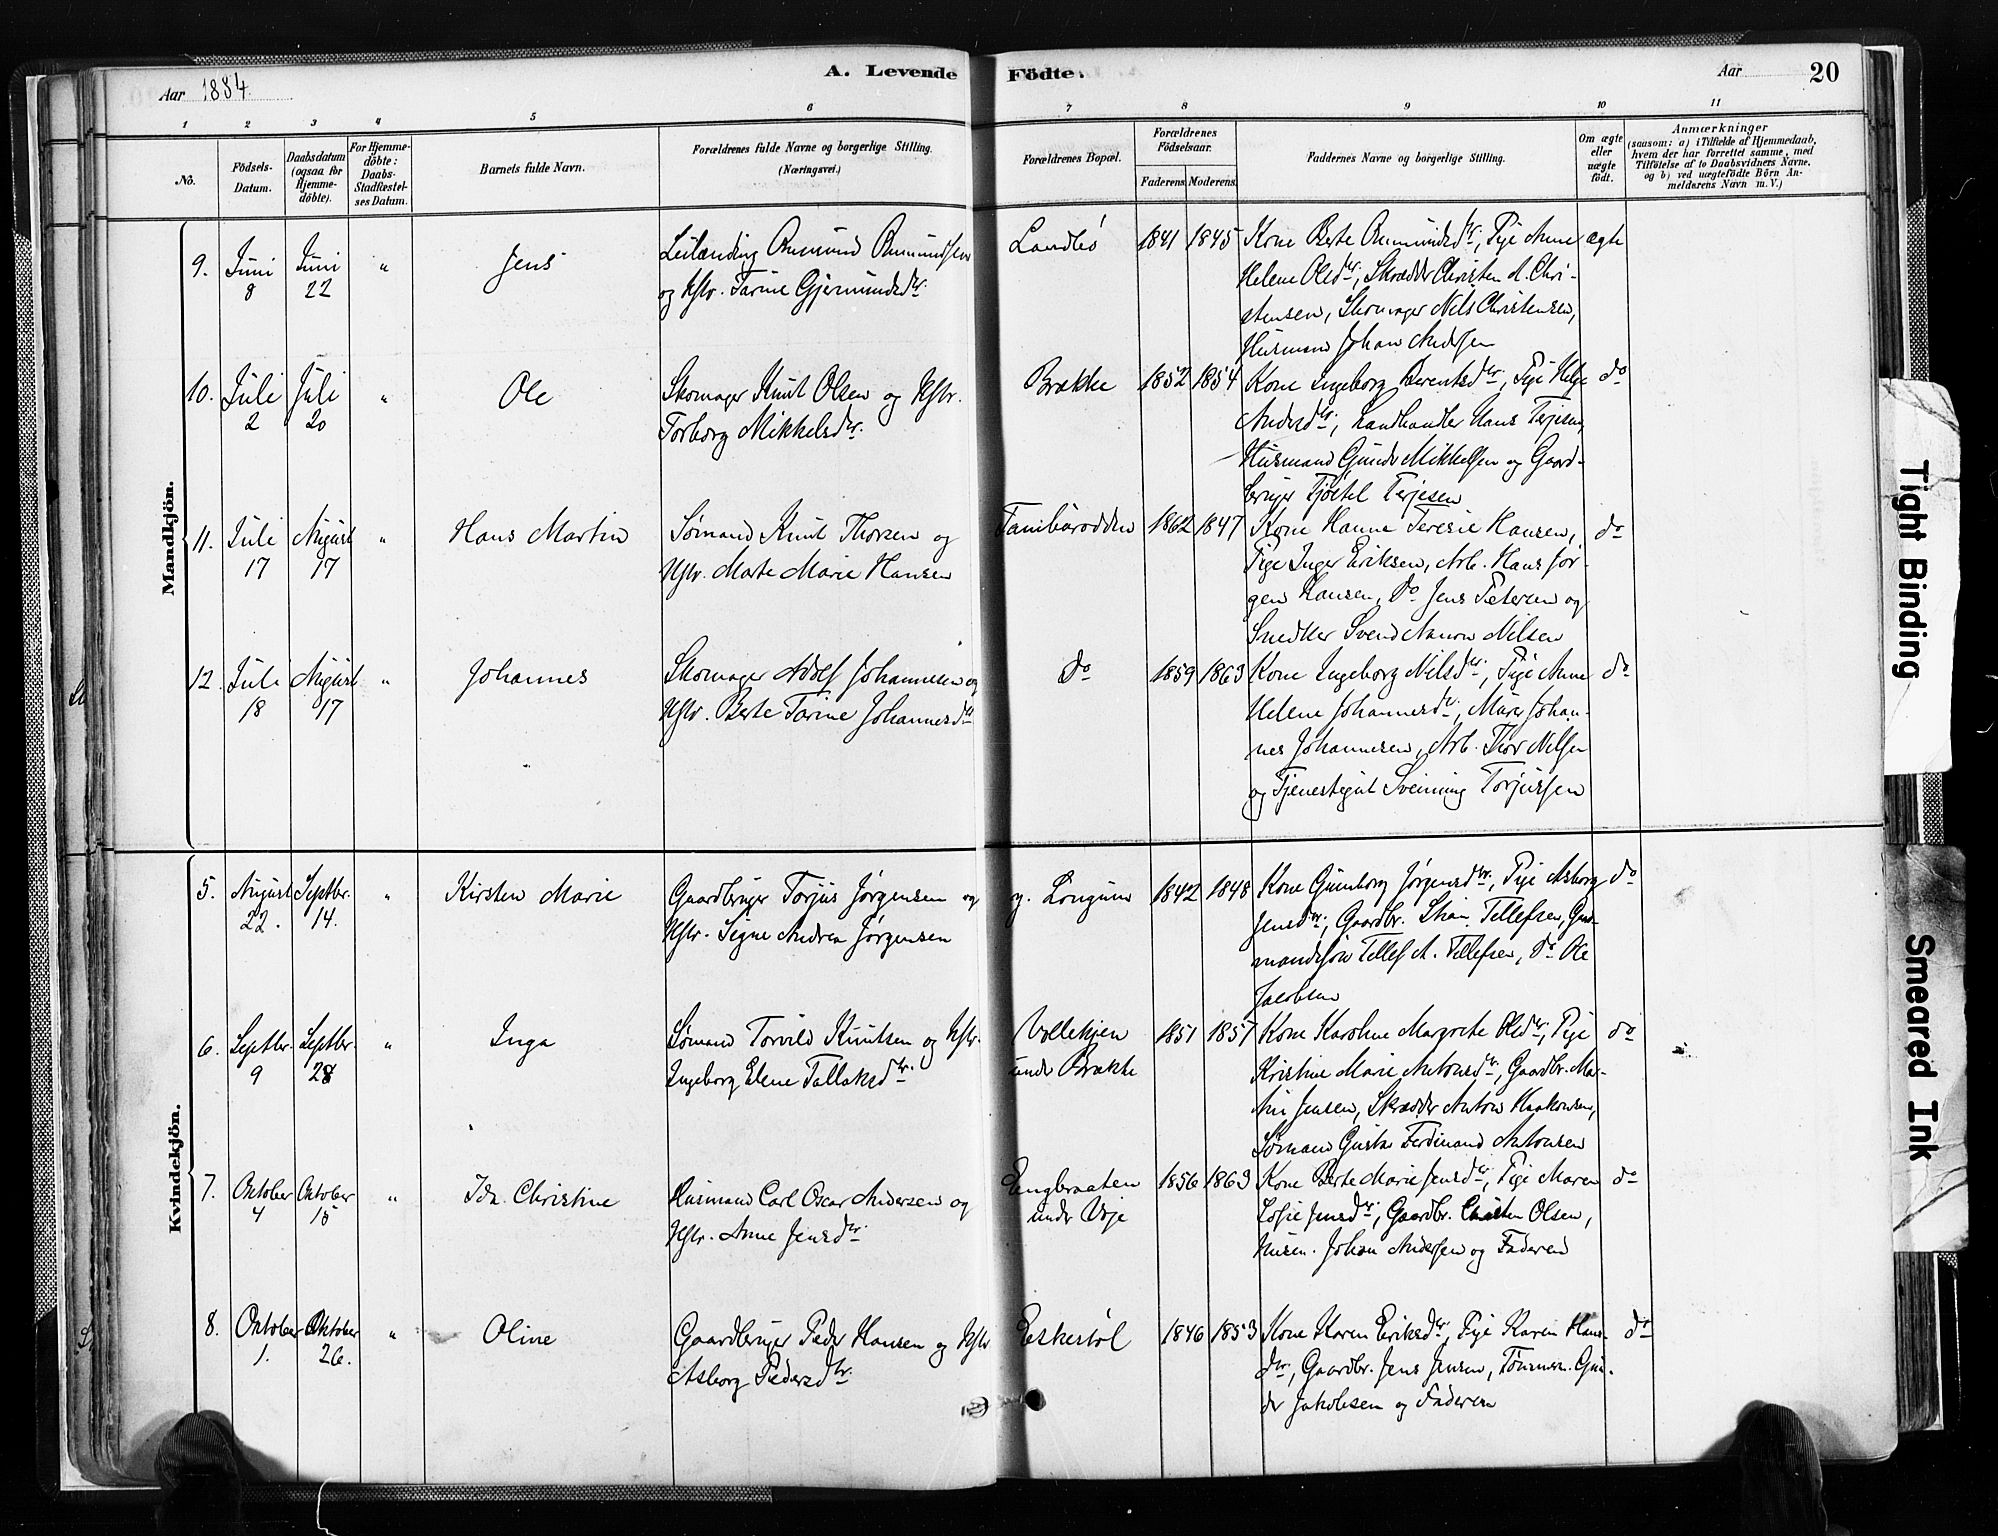 A. Levende Födte.
Aar 1884.
Aar 20
1 2 3 4 5 6 7 8 9 10 11
No.
Födsels-
Datum.
Daabsdatum
(ogsaa for
Hjemme-
döbte).
For Hjemme-
döbte:
Daabs-
Stadfæstel-
ses Datum.
Barnets fulde Navn.
Forældrenes fulde Navne og borgerlige Stilling.
(Næringsvei.)
Forældrenes Bopæl.
Forældrenes
Födselsaar.
Faderens. Moderens.
Faddernes Navne og borgerlige Stilling.
Om ægte
eller
uægte
födt.
Anmærkninger
(saasom: a) i Tilfælde af Hjemmedaab,
hvem der har forrettet samme, med
Tilföielse af to Daabsvidners Navne,
og b) ved uægtefödte Börn An-
melderens Navn m. V.)
Mandkjön.
9. Juni 8 Juni 22 " Jens
Leilænding Anmund Anmundsen
og Hstr. Tarine Gjermundsdtr.
Landbø 1841 1845
Kone Berte Anmundsdtr., Pige Anne
Helene Olsdtr., Skrædder Christen A. Chri-
stensen, Skomager Nils Christensen,
Husmand Johan Andersen
ægte
10. Juli 2 Juli 20 " Ole
Skomager Knut Olsen og Hstr.
Torborg Mikkelsdtr.
Brække 1852 1854
Kone Ingeborg Berentsdtr., Pige Helje
Andersdtr., Landhandler Hans Terjesen,
Husmand Gunder Mikkelsen og Gaard-
bruger Tjøstel Terjesen
do
11. Juli 17 August 17 " Hans Martin
Sømand Knut Thorsen og
Hstr. Marte Marie Hansen
Tambarodden 1862 1847
Kone Hanne Teresie Hansen,
Pige Inger Eriksen, Arb. Hans Jør-
gen Hansen, do Jens Petersen og
Snedker Svend Aanon Nilsen
do
12. Juli 18 August 17 " Johannes
Skomager Adolf Johannesen og
Hstr. Berte Tarine Johannesdtr
do 1859 1863
Kone Ingeborg Nilsdtr., Pige Anne
Helene Johannesdtr., Murer Johan-
nes Johannesen, Arb. Thor Nilsen
og Tjenestegut Sveinung Torjussen
do
Kvindekjön.
5. August 22. Septbr. 14. " Kirsten Marie
Gaardbruger Torjus Jørgensen og
Hstr. Signe Andrea Jørgensen
y. Longum 1842 1848
Kone Gunborg Jørgensdtr., Pige Asborg
Jensdtr., Gaardbr. Stian Tellefsen, Gaar-
mandssøn Tellef A. Tellefsen, do Ole
Jacobsen
do
6. Septbr. 9 Septbr. 28 " Inga
Sømand Torvild Knutsen og Hstr.
Ingeborg Elene Tallaksdtr.
Vollekjen
under Brække
1851 1857
Kone Karoline Margrete Olsdtr., Pige
Kristine Marie Antonsdtr., Gaardbr. Mar-
tin Jensen, Skrædder Anton Haakonsen,
Sømand Gustav Ferdinand Antonsen
do
7. Oktober 4 Oktober 15 " Ida Christine
Husmand Carl Oscar Andersen og
Hstr. Anne Jensdtr.
Engbraaten
under Voje
1856 1863
Kone Berte Marie Jensdtr., Pige Maren
Sofie Jensdtr., Gaardbr. Christen Olsen,
Husm. Johan Andersen og Faderen
do
8. Oktober 1. Oktober 26. " Oline
Gaardbruger Peder Hansen og Hstr
Asborg Pedersdtr.
Eskestøl 1846 1853
Kone Karen Eriksdtr., Pige Karen Hans-
dtr., Gaardbr. Jens Jensen, Tømmerm. Gun-
der Jakobsen og Faderen
do
Tight Binding
Smeared Ink